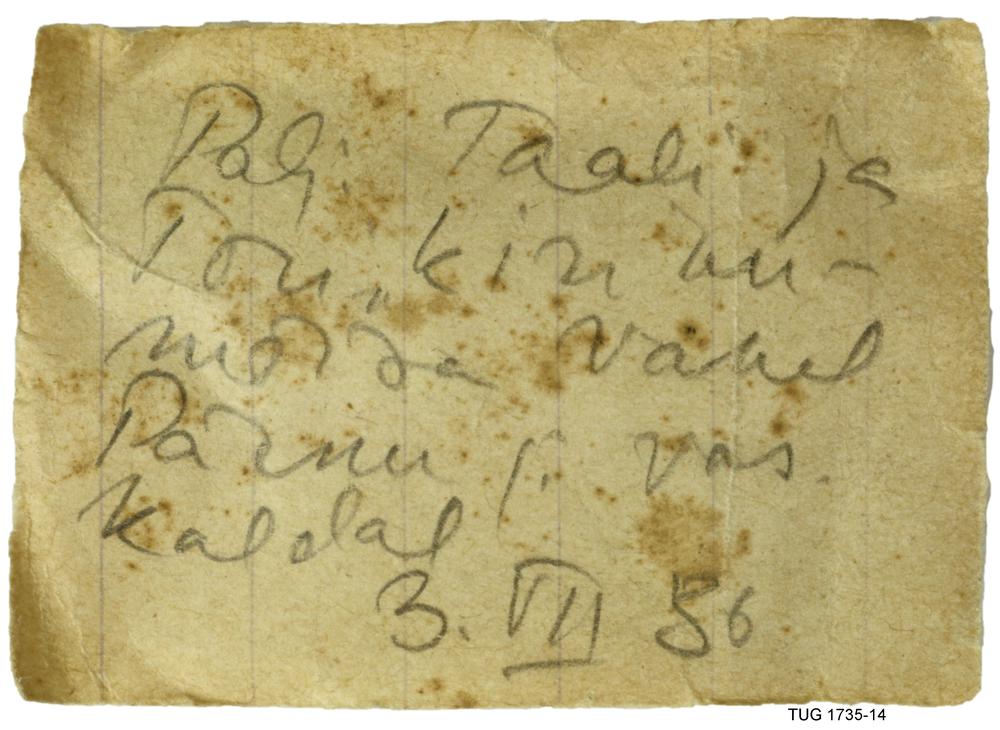 Palj. Taali ja
Tori, kiri mu-
mõisa vahel
Pärnu j. vas.
kaldal
3. VII 56
TUG 1735-14